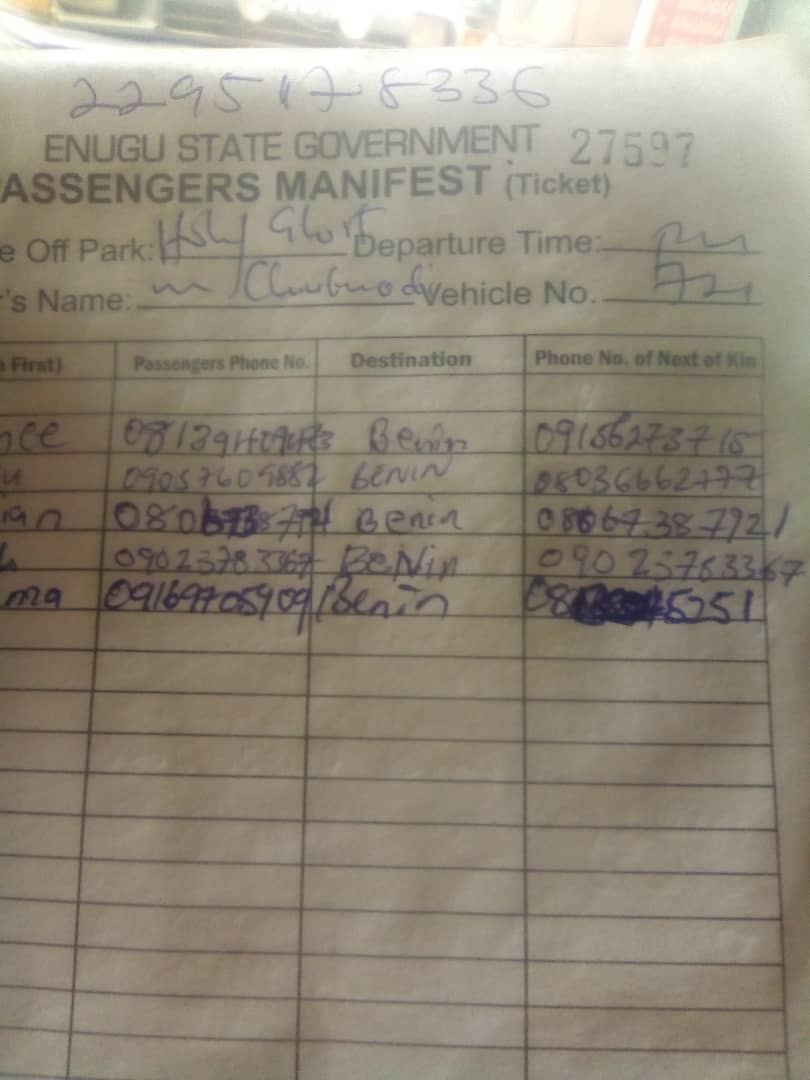 2295178336
ENUGU STATE GOVERNMENT 27597
PASSENGERS MANIFEST (Ticket)
e Off Park: Holy Ghost Departure Time:
's Name: Vehicle No.
First) Passengers Phone No. Destination Phone No. of Next of Kin
nce Benin 09156273715
09057609882 BENIN 08036662777
ian Benin 08067387921
09023783367 BENin 09023783367
ma 09169705909 Benin